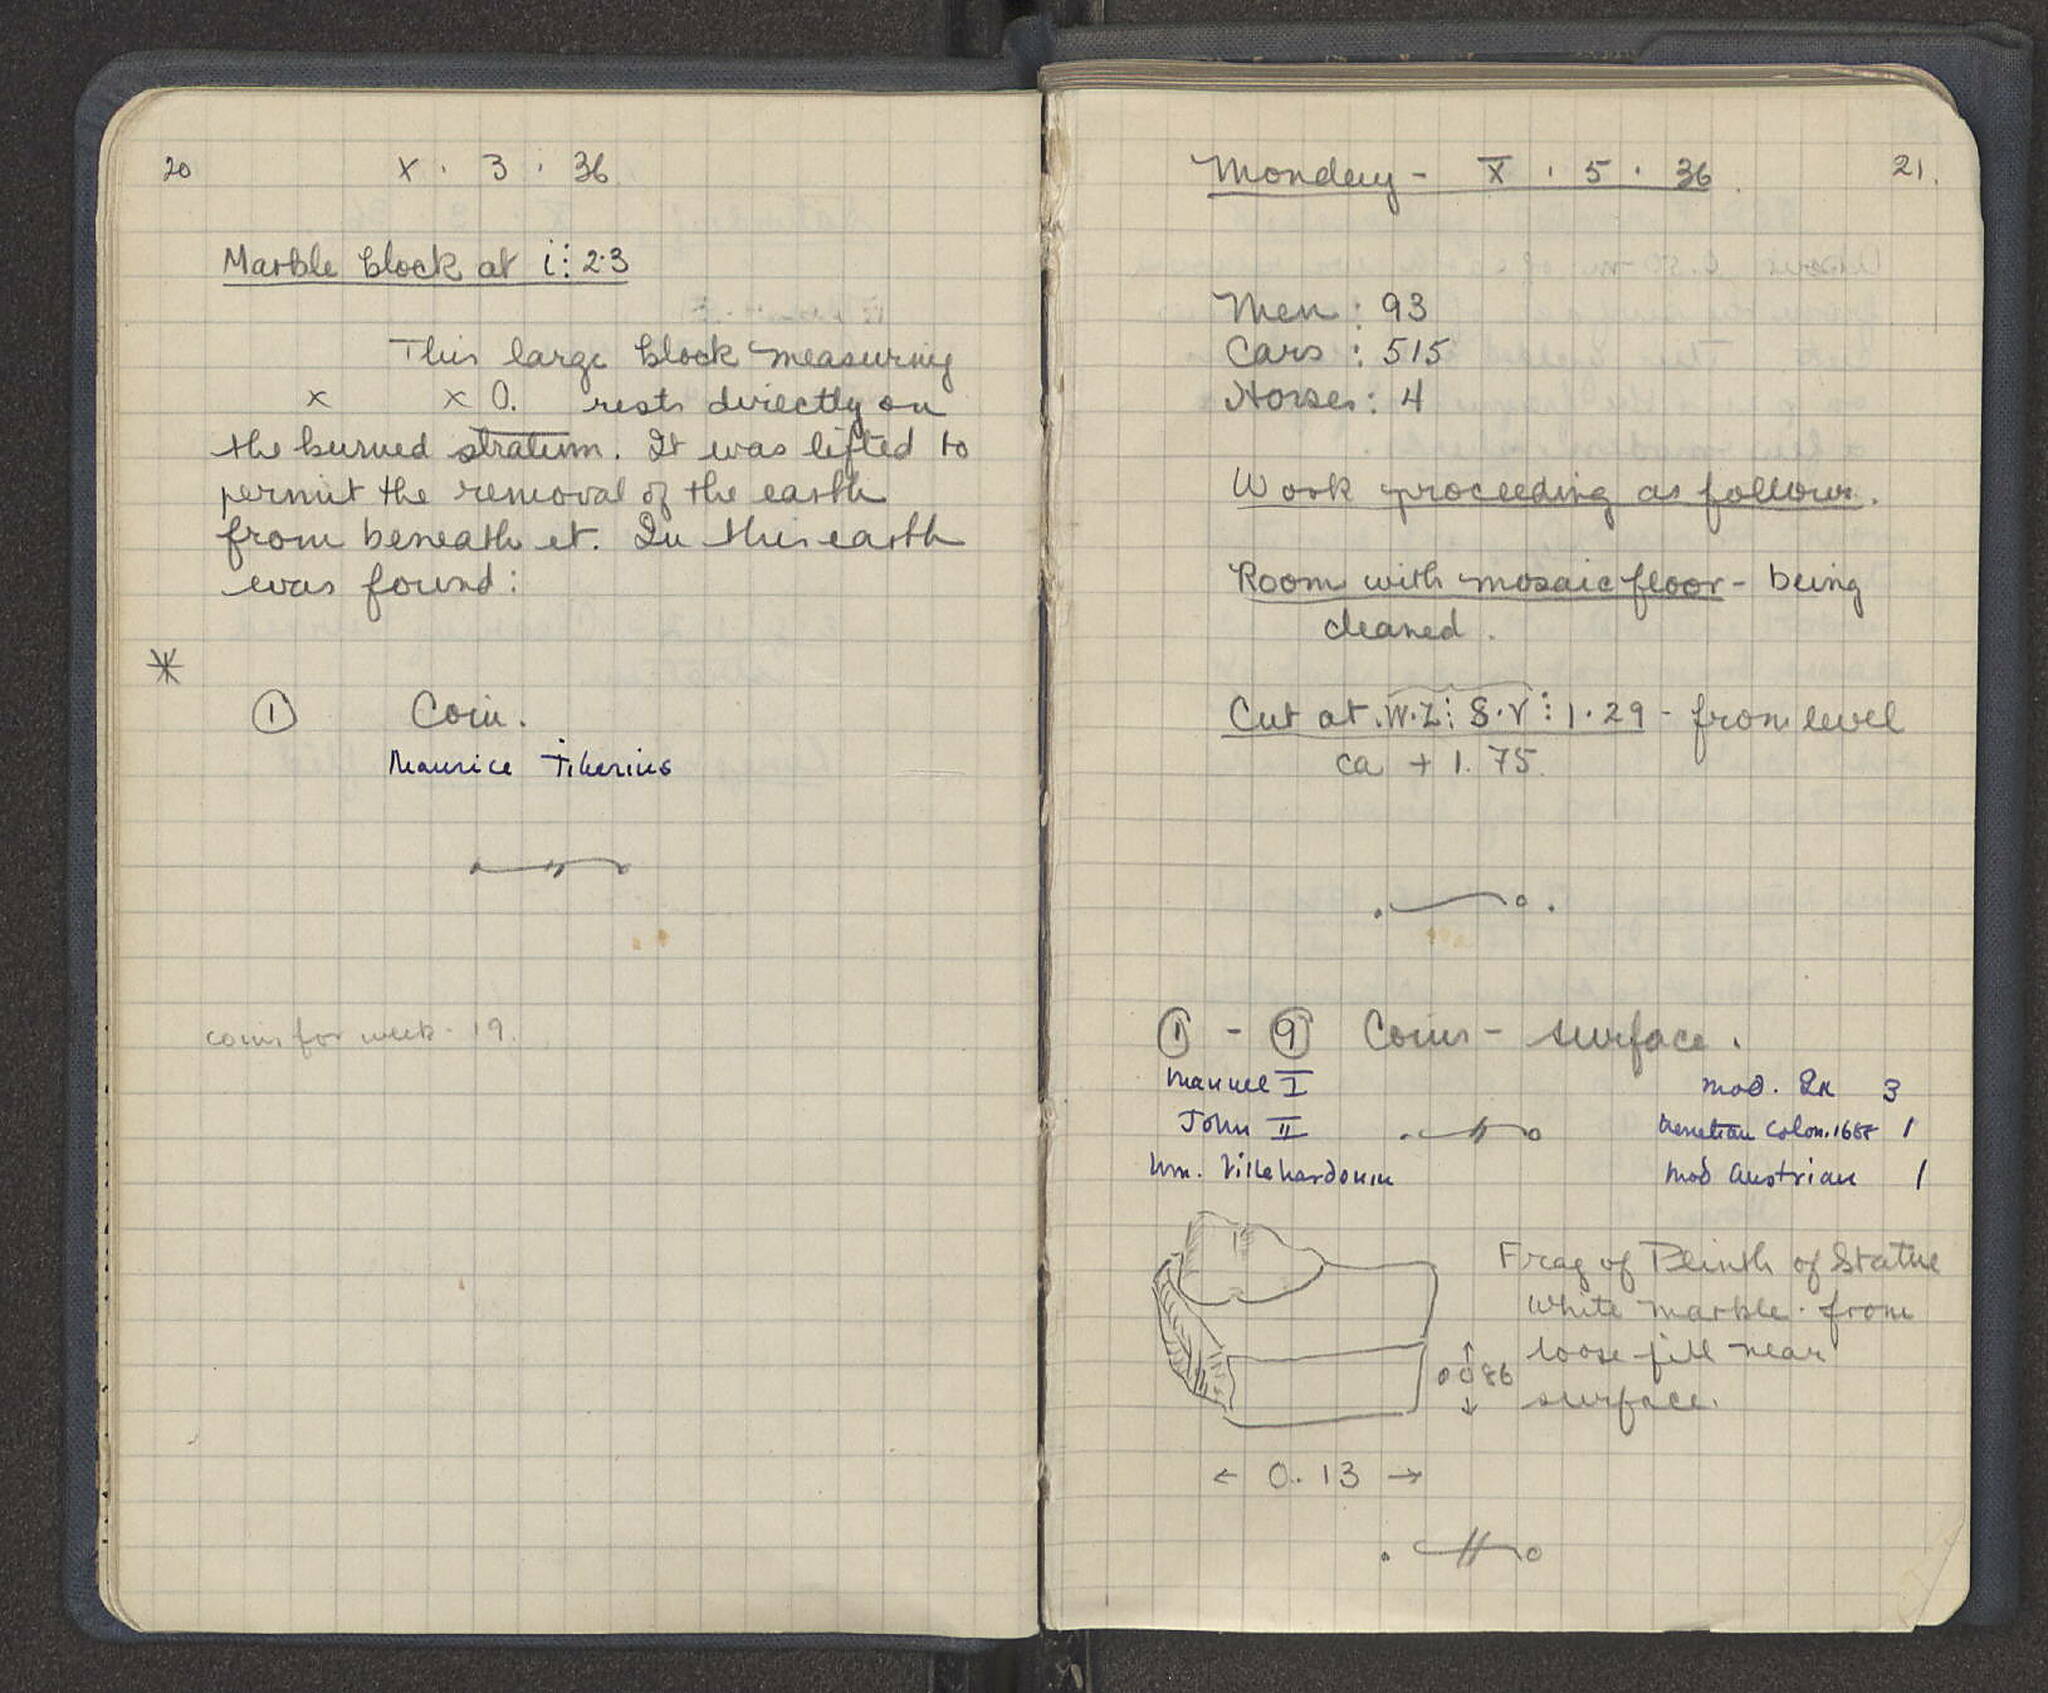 20
X · 3 · 36
Marble block at i : 2·3
This large block measuring
x x 0. rests directly on
the burned stratum. It was lifted to
permit the removal of the earth
from beneath it. In this earth
was found:
① Coin.
Maurice Tiberius
coins for week - 19.
Monday - X · 5 · 36
21.
Men : 93
Cars : 515
Horses : 4
Work proceeding as follows.
Room with mosaic floor - being
cleaned.
Cut at W·Z : S·V : 1·29 - from level
ca + 1.75.
① - ⑨ Coins - surface.
Manuel I
mod. 3
John II
Venetian Colon. 1
Wm. Villehardouin
Mod Austrian 1
Frag of Plinth of Statue
White marble. from
loose fill near
0.086
surface.
← 0.13 →